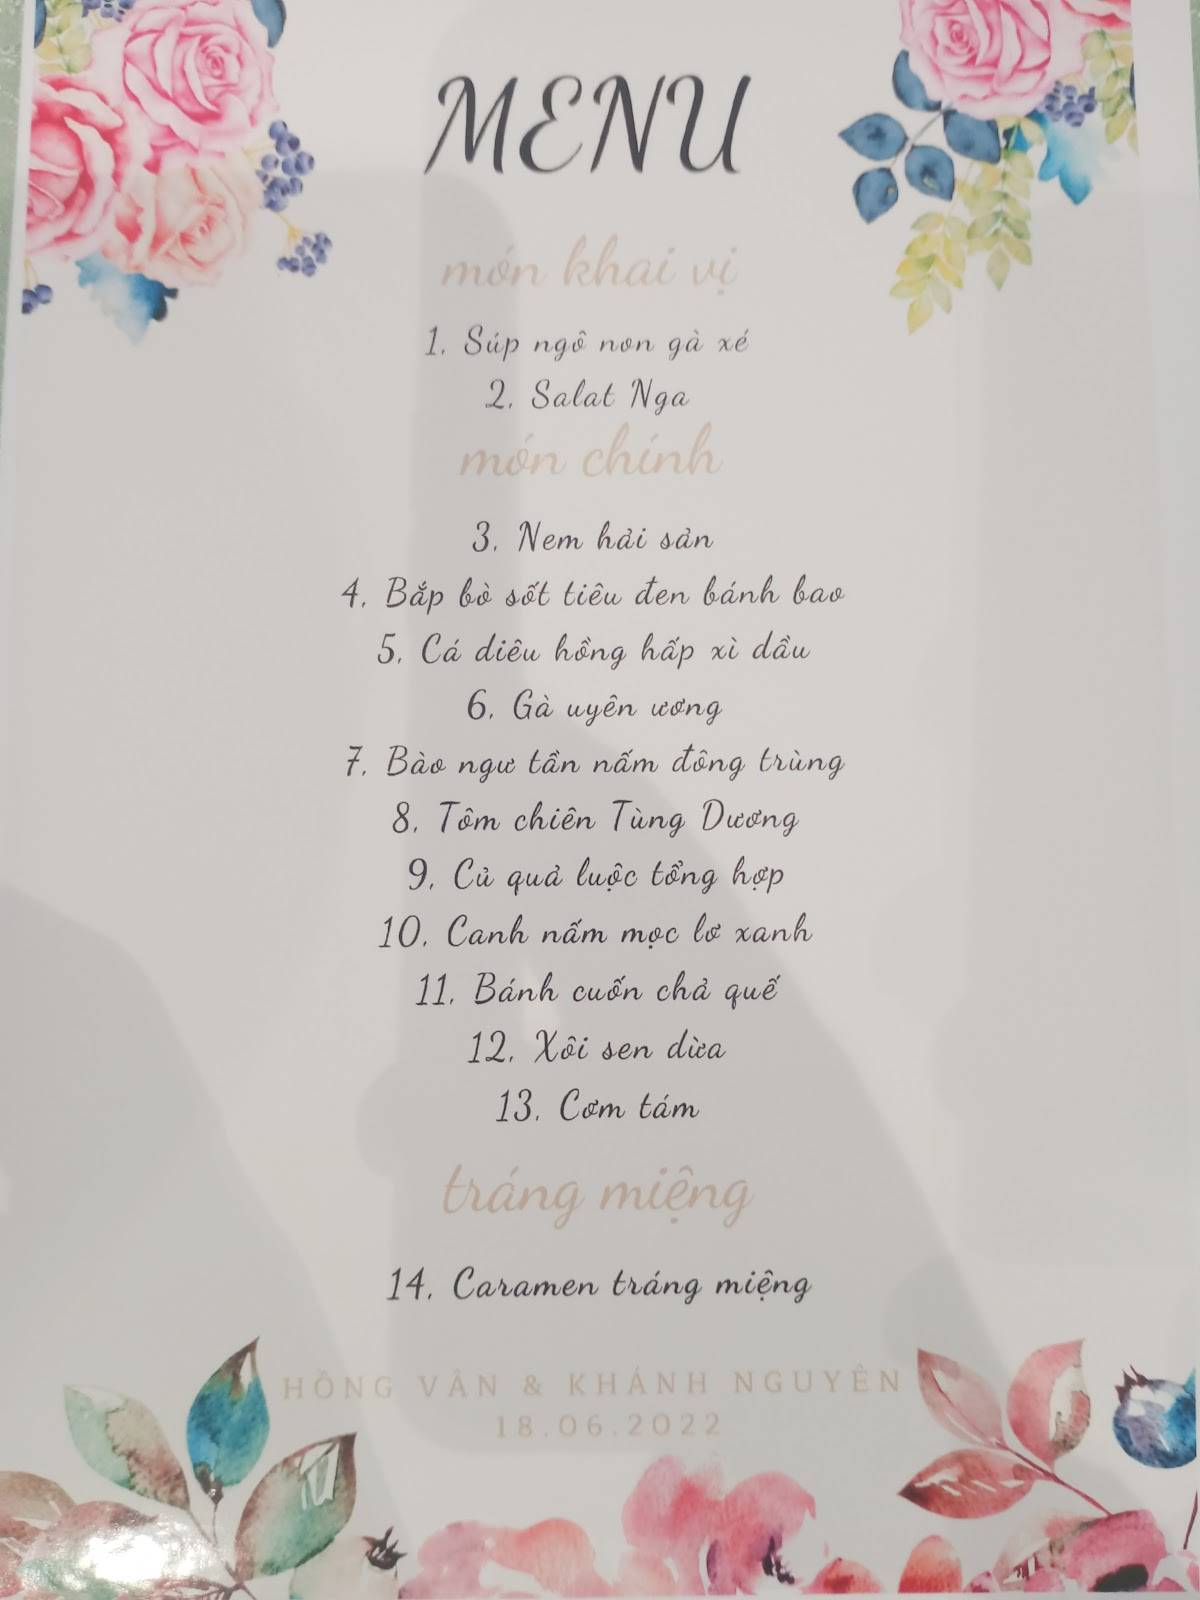 MENU
món khai vị
1. Súp ngô non gà xé
2. Salat Nga
món chính
3. Nem hải sản
4. Bắp bò sốt tiêu đen bánh bao
5. Cá diêu hồng hấp xì dầu
6. Gà uyên ương
7. Bào ngư tần nấm đông trùng
8. Tôm chiên Tùng Dương
9. Củ quả luộc tổng hợp
10. Canh nấm mọc lơ xanh
11. Bánh cuốn chả quế
12. Xôi sen dừa
13. Cơm tám
tráng miệng
14. Caramen tráng miệng
HỒNG VÂN & KHÁNH NGUYÊN
18.06.2022